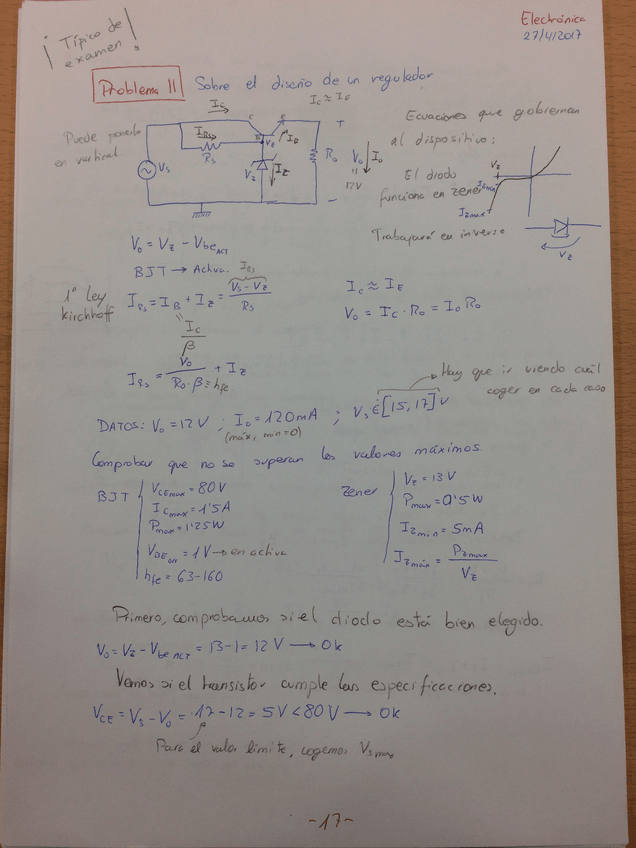 ¡Típico de
examen!
Electrónica
27/4/2017
Problema 11 Sobre el diseño de un regulador
Puede ponerlo
en vertical
Ic
Ic ≈ IE
c
e
B
IRs
Rs
IB
Vs
Vz
Iz
Ro
+
Vo
Io
=
12V
-
Ecuaciones que gobiernan
al dispositivo:
El diodo
funciona en zener
Vz
Izmin
Izmax
Trabajará en inverso
Vz
Vo = Vz - VbeACT
BJT → Activa.
1ª Ley
Kirchhoff
IRs = IB + Iz = (Vs - Vz)/Rs
IRs
= Ic/β
Ic ≈ IE
Vo = Ic · Ro = Io Ro
IRs = Vo/(Ro · β ≡ hfe) + Iz
Hay que ir viendo cuál
coger en cada caso
DATOS: Vo = 12V ; Io = 120mA ; Vs ∈ [15, 17] V
(máx, min=0)
Comprobar que no se superan los valores máximos.
BJT
VCEmax = 80V
ICmax = 1'5A
Pmax = 1'25W
VBEon = 1V → en activa
hfe = 63-160
Zener
Vz = 13V
Pmax = 0'5W
Izmin = 5mA
Izmáx = Pzmax/Vz
Primero, comprobamos si el diodo está bien elegido.
Vo = Vz - Vbe ACT = 13-1 = 12V → Ok
Vemos si el transistor cumple las especificaciones.
VCE = Vs - Vo = 17 - 12 = 5V < 80V → Ok
Para el valor límite, cogemos Vsmax
-17-